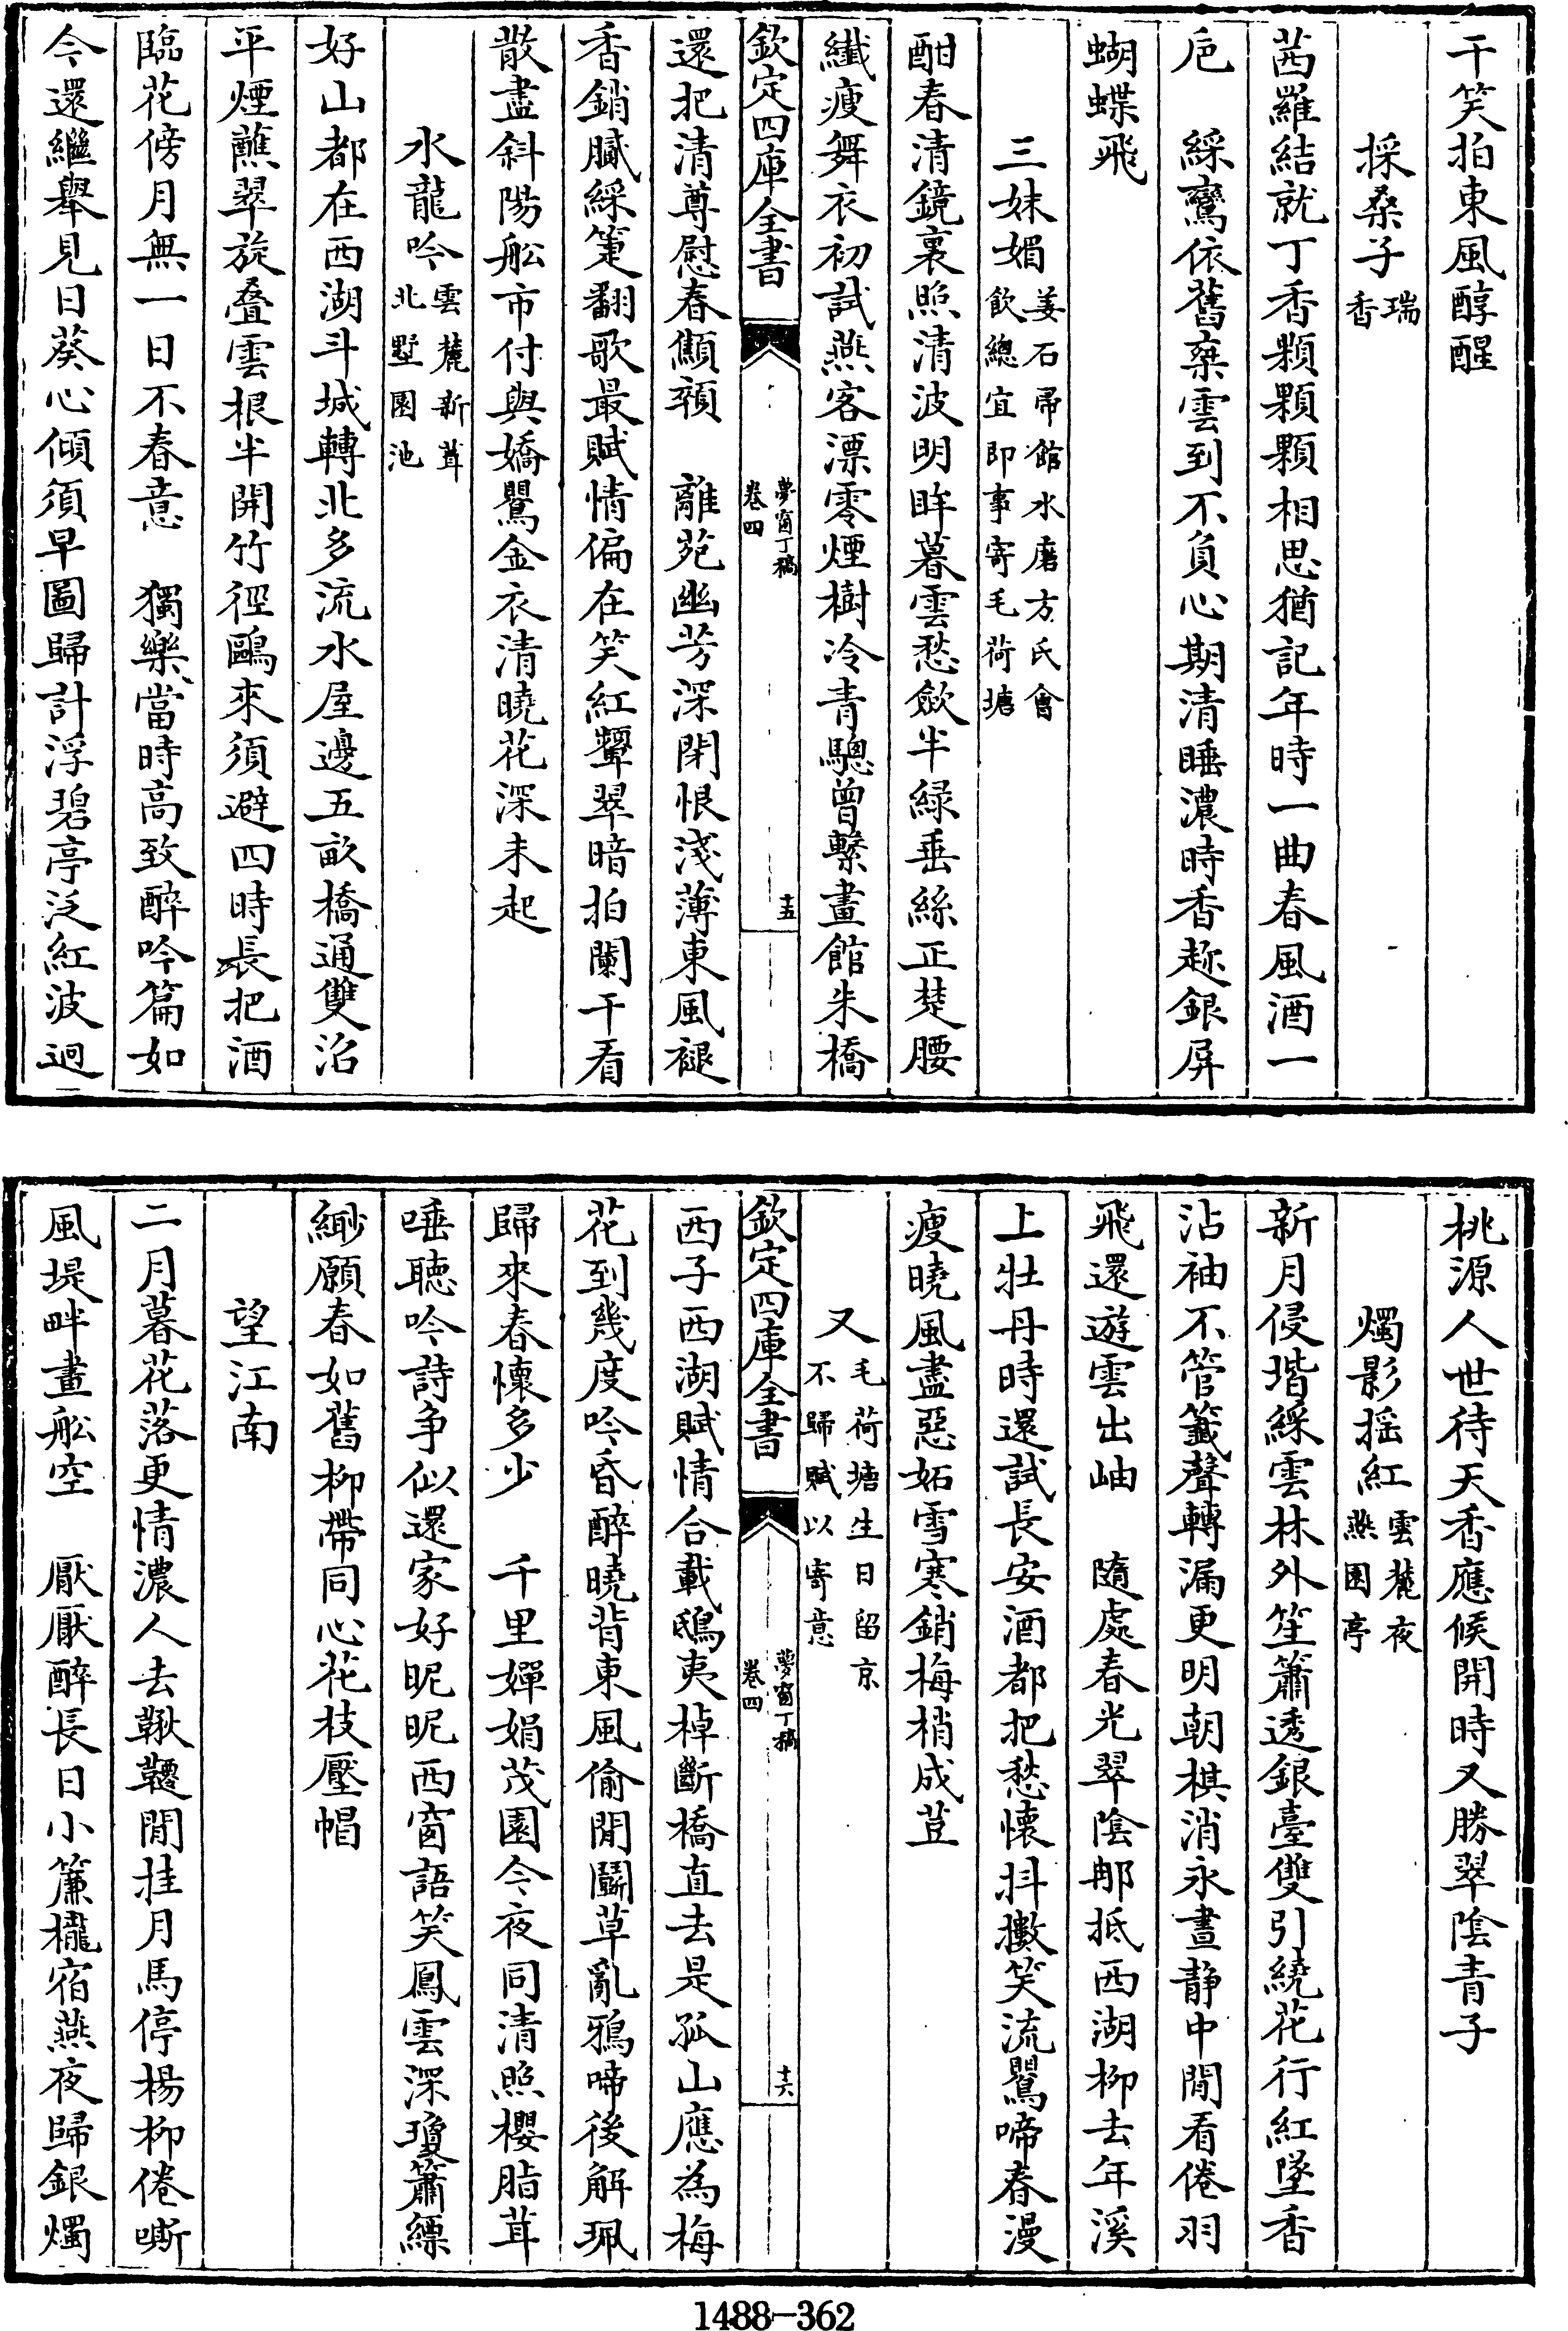 干笑拍東風醇醒
採桑子瑞香
茜羅結就丁香顆顆顆相思猶記年時一曲春風酒一
巵　綵鸞依舊棄雲到不負心期清睡濃時香趂銀屏
蝴蝶飛
三姝媚姜石帚館水磨方氏會飲總宜即事寄毛荷塘
酣春清鏡裏照清波明眸暮雲愁歛半綠垂絲正楚腰
纖瘦舞衣初試燕客漂零煙樹冷青驄曾繫畫館朱橋
欽定四庫全書　夢窗丁稿卷四　十五
還把清尊慰春顦顇　離苑幽芳深閉恨淺薄東風褪
香銷膩綵箑翻歌最賦情偏在笑紅顰翠暗拍闌干看
散盡斜陽船市付與嬌鸎金衣清曉花深未起
水龍吟雲麓新葺北墅園池
好山都在西湖斗城轉北多流水屋邊五畝橋通雙沿
平煙蘸翠旋疊雲根半開竹徑鷗來須避四時長把酒
臨花傍月無一日不春意　獨樂當時高致醉吟篇如
今還繼舉見日葵心傾須早圖歸計浮碧亭泛紅波迥
桃源人世待天香應候開時又勝翠陰青子
燭影摇紅雲麓夜燕園亭
新月侵堦綵雲林外笙簫透銀臺雙引繞花行紅墜香
沾袖不管籤聲轉漏更明朝棋消永晝静中閒看倦羽
飛還遊雲出岫　隨處春光翠陰那抵西湖柳去年溪
上牡丹時還試長安酒都把愁懷抖擻笑流鸎啼春漫
瘦曉風盡惡妬雪寒銷梅梢成荳
又毛荷塘生日留京不歸賦以寄意
欽定四庫全書　夢窗丁稿卷四　十六
西子西湖賦情合載鴟夷棹斷橋直去是孤山應為梅
花到幾度吟昏醉曉背東風偷閒鬭草亂鴉啼後解珮
歸來春懷多少　千里嬋娟茂園今夜同清照櫻脂茸
唾聽吟詩争似還家好昵昵西窗語笑鳳雲深瓊簫縹
緲願春如舊柳帶同心花枝壓帽
望江南
二月暮花落更情濃人去鞦韆閒挂月馬停楊柳倦嘶
風堤畔畫船空　厭厭醉長日小簾櫳宿燕夜歸銀燭
1488-362